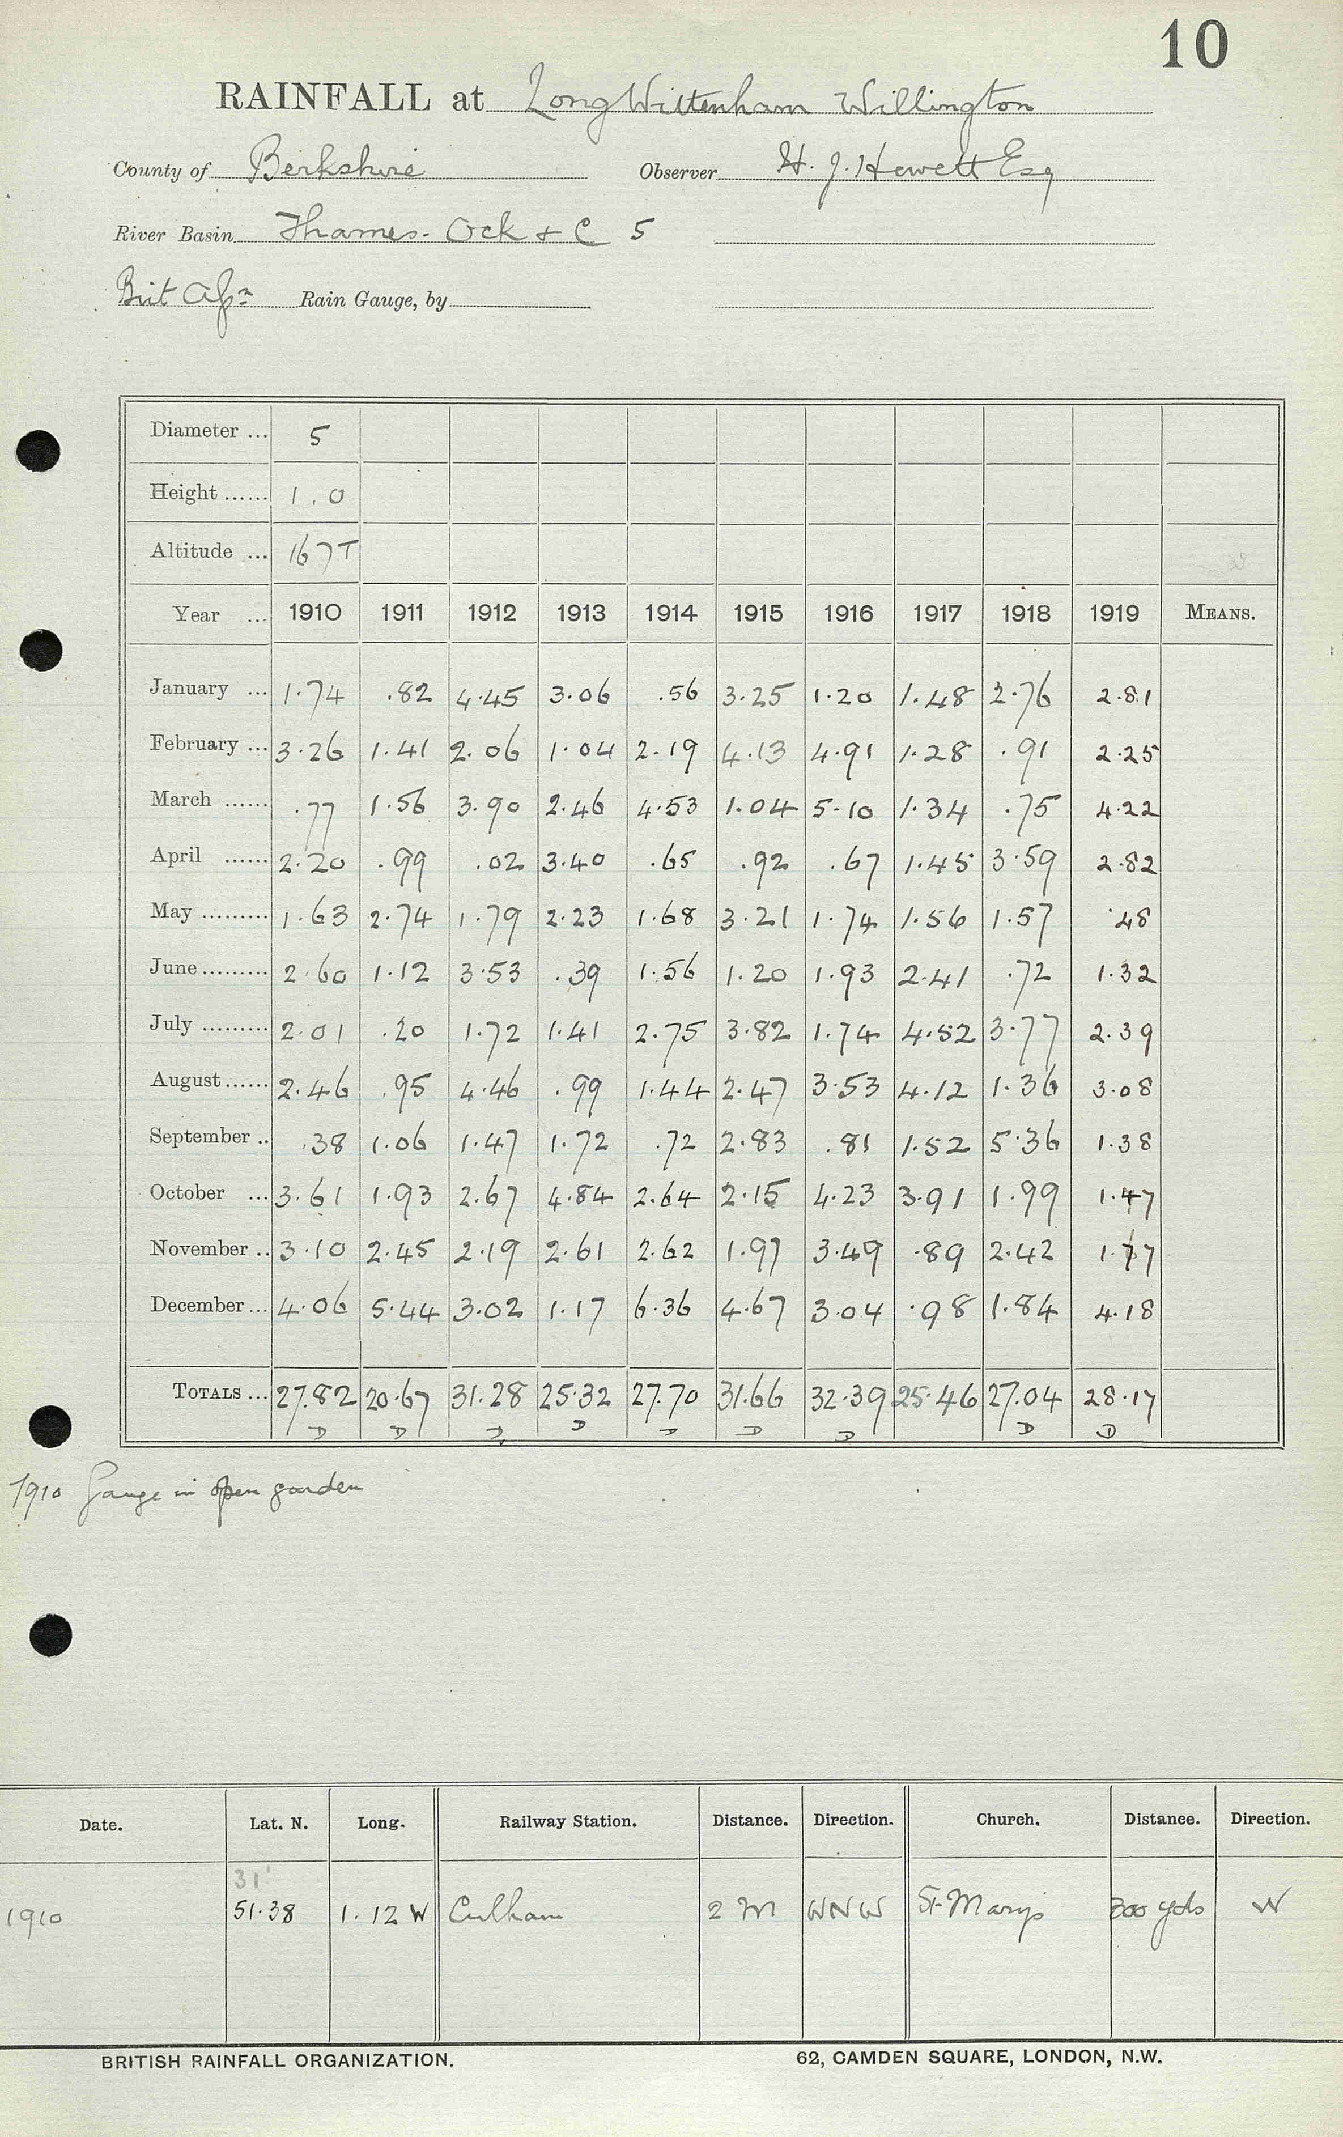 10
RAINFALL at Long Wittenham Willington
County of Berkshire Observer H. J. Hewett Esq
River Basin Thames - Ock & C 5
Brit Rain Gauge, by
Diameter ... 5
Height ...... 1.0
Altitude ... 167 T
Year ... 1910 1911 1912 1913 1914 1915 1916 1917 1918 1919 MEANS.
January ... 1.74 .82 4.45 3.06 .56 3.25 1.20 1.48 2.76 2.81
February ... 3.26 1.41 2.06 1.04 2.19 4.13 4.91 1.28 .91 2.25
March ...... .77 1.56 3.90 2.46 4.53 1.04 5.10 1.34 .75 4.22
April ...... 2.20 .99 .02 3.40 .65 .92 .67 1.45 3.59 2.82
May ......... 1.63 2.74 1.79 2.23 1.68 3.21 1.74 1.56 1.57 .48
June ......... 2.60 1.12 3.53 .39 1.56 1.20 1.93 2.41 .72 1.32
July ......... 2.01 .20 1.72 1.41 2.75 3.82 1.74 4.52 3.77 2.39
August ...... 2.46 .95 4.46 .99 1.44 2.47 3.53 4.12 1.36 3.08
September .. .38 1.06 1.47 1.72 .72 2.83 .81 1.52 5.36 1.38
October ... 3.61 1.93 2.67 4.84 2.64 2.15 4.23 3.91 1.99 1.47
November .. 3.10 2.45 2.19 2.61 2.62 1.97 3.49 .89 2.42 1.77
December ... 4.06 5.44 3.02 1.17 6.36 4.67 3.04 .98 1.84 4.18
TOTALS ... 27.82 20.67 31.28 25.32 27.70 31.66 32.39 25.46 27.04 28.17
D D D D D D D D D
1910 Gauge in open garden
Date. Lat. N. Long. Railway Station. Distance. Direction. Church. Distance. Direction.
31'
1910 51.38 1.12 W Culham 2 M WNW St. Marys 300 yds W
BRITISH RAINFALL ORGANIZATION. 62, CAMDEN SQUARE, LONDON, N.W.